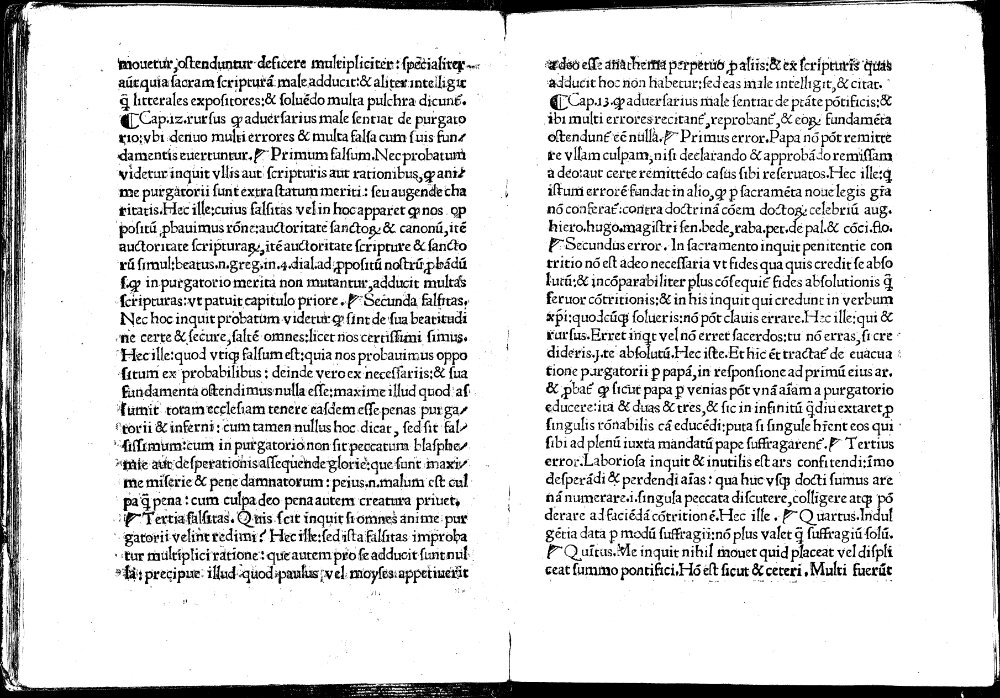 mouetur,ostenduntur deficere multipliciter: specialiter
aũt quia sacram scripturã male adducit:& aliter intelligit
q̃ litterales expositores:& soluẽdo multa pulchra dicunẽ.
¶Cap.12.rursus ꝙ aduersarius male sentiat de purgato
rio;vbi denuo multi errores & multa falsa cum suis fun/
damentis euertuntur. ¶Primum falsum.Nec probatum
videtur inquit vllis aut scripturis aut rationibus,ꝙ ani/
me purgatorii sunt extra statum meriti: seu augende cha
ritatis.Hec ille:cuius falsitas vel in hoc apparet ꝙ nos op
positũ ꝓbauimus rõne:auctoritatẽ sanctoꝝ & canonũ,itẽ
auctoritate scripturaꝝ,itẽ auctoritate scripture & sancto
rũ simul:beatus.n.greg.in.4.dial.ad ꝓpositũ nostrũ ꝓbãdũ
s.ꝙ in purgatorio merita non mutantur,adducit multas
scripturas:vt patuit capitulo priore. ¶Secunda falsitas.
Nec hoc inquit probatum videtur ꝙ sint de sua beatitudi
ne certe & secure,saltẽ omnes:licet nos certissimi simus.
Hec ille:quod vtiqꝫ falsum est:quia nos probauimus oppo
situm ex probabilibus: deinde vero ex necessariis:& sua
fundamenta ostendimus nulla esse:maxime illud quod as
sumit totam ecclesiam tenere easdem esse penas purga/
torii & inferni: cum tamen nullus hoc dicat, sed sit fal/
sissimum:cum in purgatorio non sit peccatum blasphe
mie aut desperationis assequende glorie:que sunt maxi/
me miserie & pene damnatorum: peius.n.malum est cul
pa q̃ pena: cum culpa deo pena autem creatura priuet.
¶Tertia falsitas. Quis scit inquit si omnes anime pur
gatorii velint redimi? Hec ille:sed ista falsitas improba
tur multiplici ratione: que autem pro se adducit sunt nul
la: precipue illud quod paulus vel moyses appetiuerit
adeo esse anathema perpetuo ꝓ aliis:& ex scripturis quas
adducit hoc non habetur:sed eas male intelligit,& citat.
¶Cap.13.ꝙ aduersarius male sentiat de ptãte põtificis:&
ibi multi errores recitanẽ,reprobanẽ,& eoꝝ fundamẽta
ostendunẽ eẽ nulla. ¶Primus error.Papa nõ põt remitte
re vllam culpam,nisi declarando & approbãdo remissam
a deo:aut certe remittẽdo casus sibi reseruatos.Hec ille:q
istum errorẽ fundat in alio,ꝙ ꝑ sacramẽta noue legis grã
nõ conferaẽ:contra doctrinã cõem doctoꝝ celebriũ aug.
hiero.hugo.magistri sen.bede,raba.pet.de pal.& cõci.flo.
¶Secundus error. In sacramento inquit penitentie con
tritio nõ est adeo necessaria vt fides qua quis credit se abso
lutũ:& incõparabiliter plus cõsequiẽ fides absolutionis q̃
feruor cõtritionis:& in his inquit qui credunt in verbum
xp̃i:quodcũqꝫ solueris:nõ põt clauis errare.Hec ille:qui &
rursus.Erret inqt vel nõ erret sacerdos:tu nõ erras,si cre
dideris.j.te absolutũ.Hec iste.Et hic ẽt tractaẽ de euacua
tione purgatorii ꝑ papã,in responsione ad primũ eius ar.
& ꝓbaẽ ꝙ sicut papa ꝑ venias põt vnã aĩam a purgatorio
educere:ita & duas & tres,& sic in infinitũ q̃diu extaret,ꝑ
singulis rõnabilis cã educẽdi:puta si singule hĩent eos qui
sibi ad plenũ iuxta mandatũ pape suffragarenẽ. ¶Tertius
error.Laboriosa inquit & inutilis est ars confitendi:ĩmo
desperãdi & perdendi aĩas: qua huc vsqꝫ docti sumus are
nã numerare.i.singula peccata discutere,colligere atqꝫ põ
derare ad faciẽdã cõtritionẽ.Hec ille. ¶Quartus.Indul
gẽtia data ꝑ modũ suffragii:nõ plus valet q̃ suffragiũ solũ.
¶Quĩtus.Me inquit nihil mouet quid placeat vel displi
ceat summo pontifici.Hõ est sicut & ceteri. Multi fuerũt